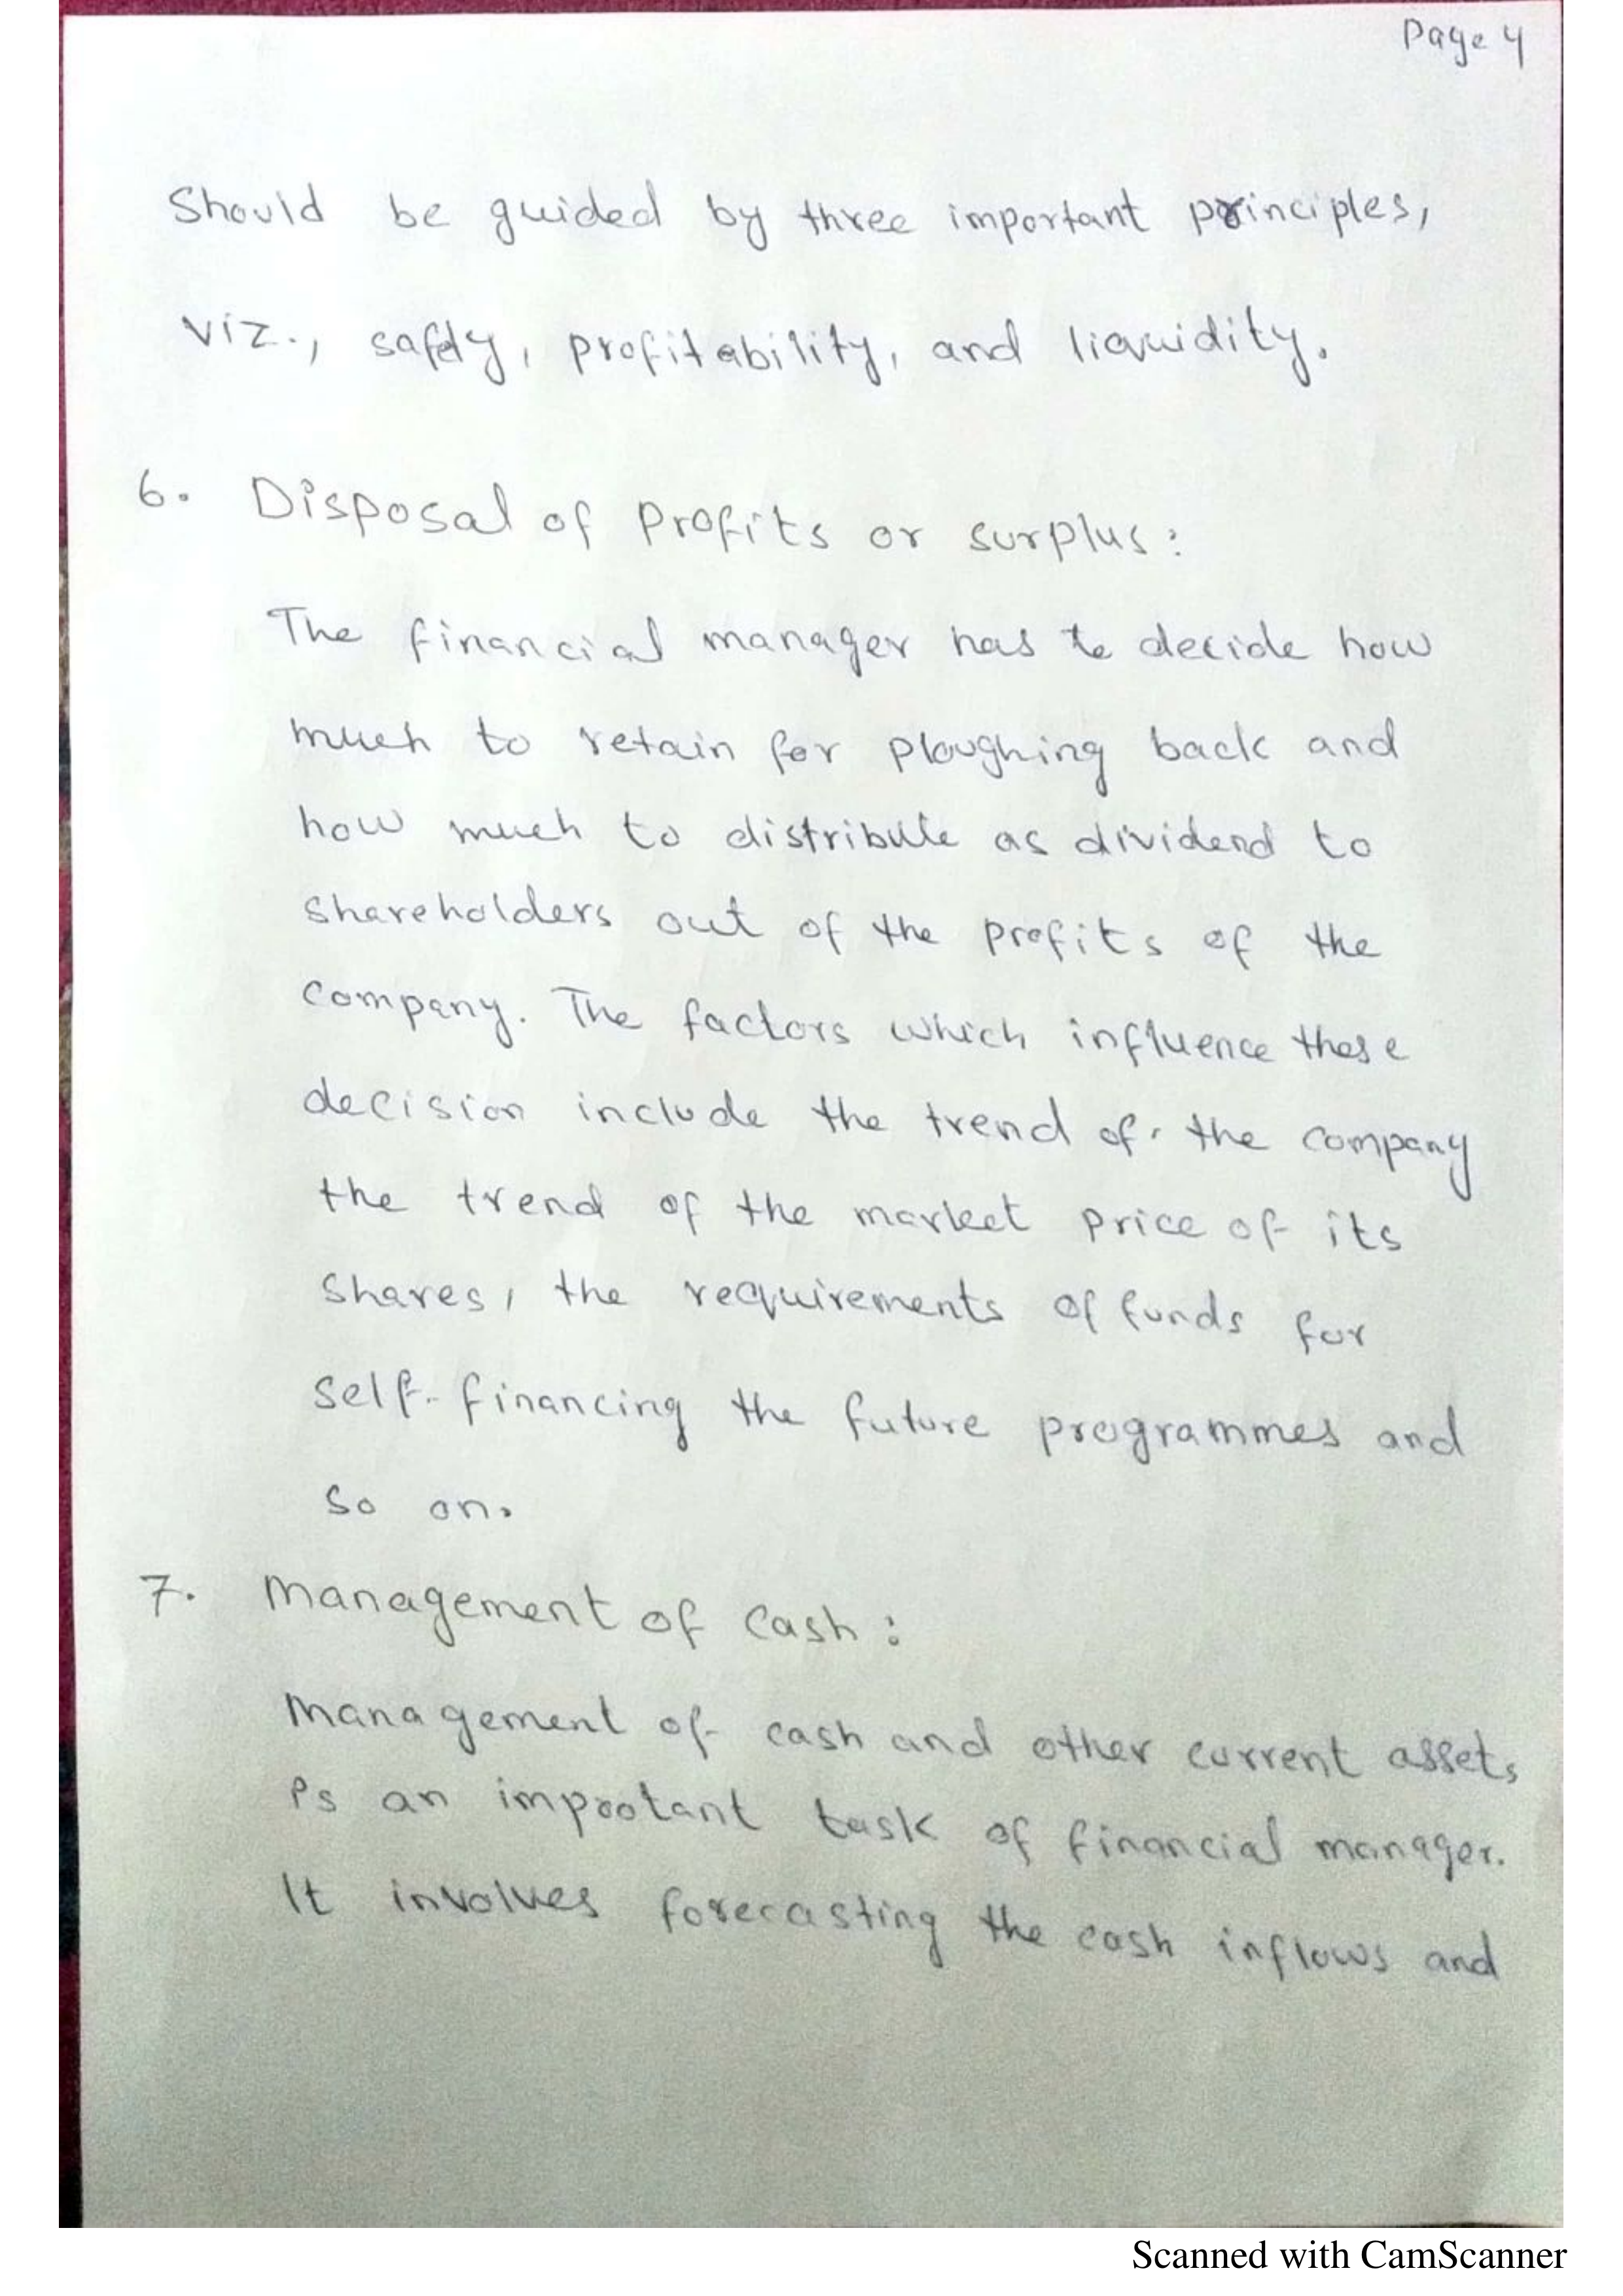 Page 4
Should be guided by three important principles,
viz., safety, profitability, and liquidity.
6. Disposal of Profits or surplus:
The financial manager has to decide how
much to retain for ploughing back and
how much to distribute as dividend to
shareholders out of the profits of the
company. The factors which influence these
decision include the trend of the company
the trend of the market price of its
shares, the requirements of funds for
self-financing the future programmes and
so on.
7. Management of Cash:
Management of cash and other current assets
is an improtant task of financial manager.
It involves forecasting the cash inflows and
Scanned with CamScanner